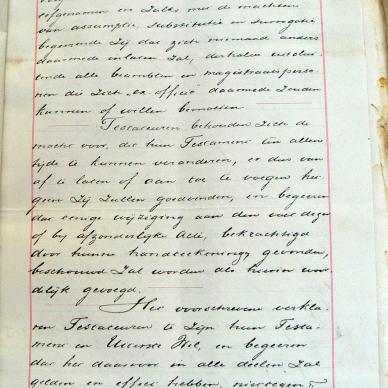 erfgenamen en zulks met de machten
van assumptie, substitutie en surrogatie
begeerende zij dat zich niemand anders
daarmede inlaten zal, derhalve uitslui-
tende alle beambten en magistraatsperso-
nen die zich "ex officio" daarmede zouden
kunnen of willen bemoeien
Testateuren behouden zich de
macht voor, dit hun Testament ten allen
tijde te kunnen veranderen, er dus van
af te laten of aan toe te voegen het
geen zij zullen goedvinden, en begeeren
dat eenige wijziging aan den voet dezer
of bij afzonderlijke Acte, bekrachtigd
door hunne handteekenings gevonden,
beschouwd zal worden als hierin woor-
delijk gevoegd.
Het voorschreven verkla-
ren Testateuren te zijn hun Testa-
ment en Uiterste Wil, en begeeren
dat het daarvoor in alle deelen zal
gelden en effect hebben, niettegen